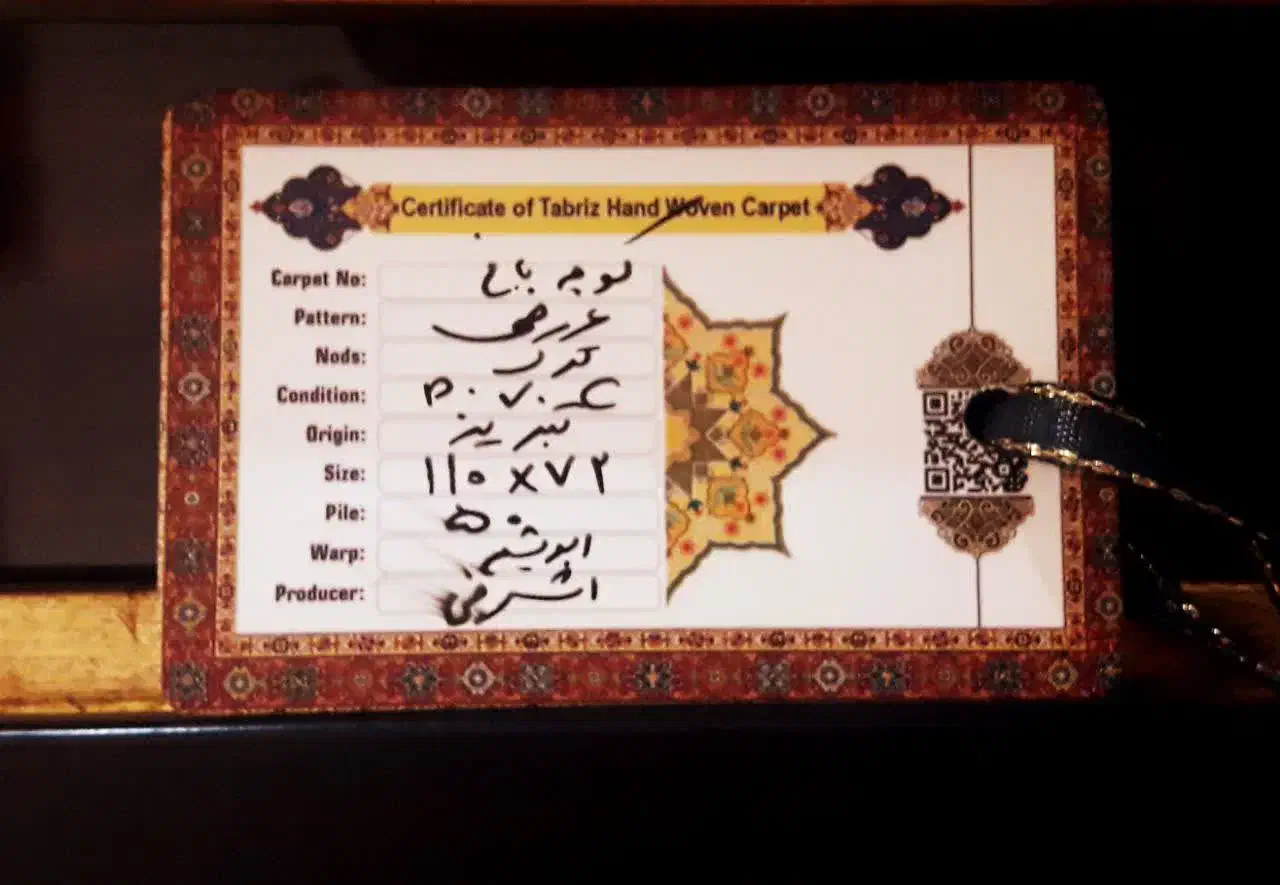 Certificate of Tabriz Hand Woven Carpet
Carpet No: کوچه باغ
Pattern:
Nods: کرک
Condition:
Origin: تبریز
Size: 110 x 72
Pile: 50
Warp: ابریشم
Producer: اشرفی